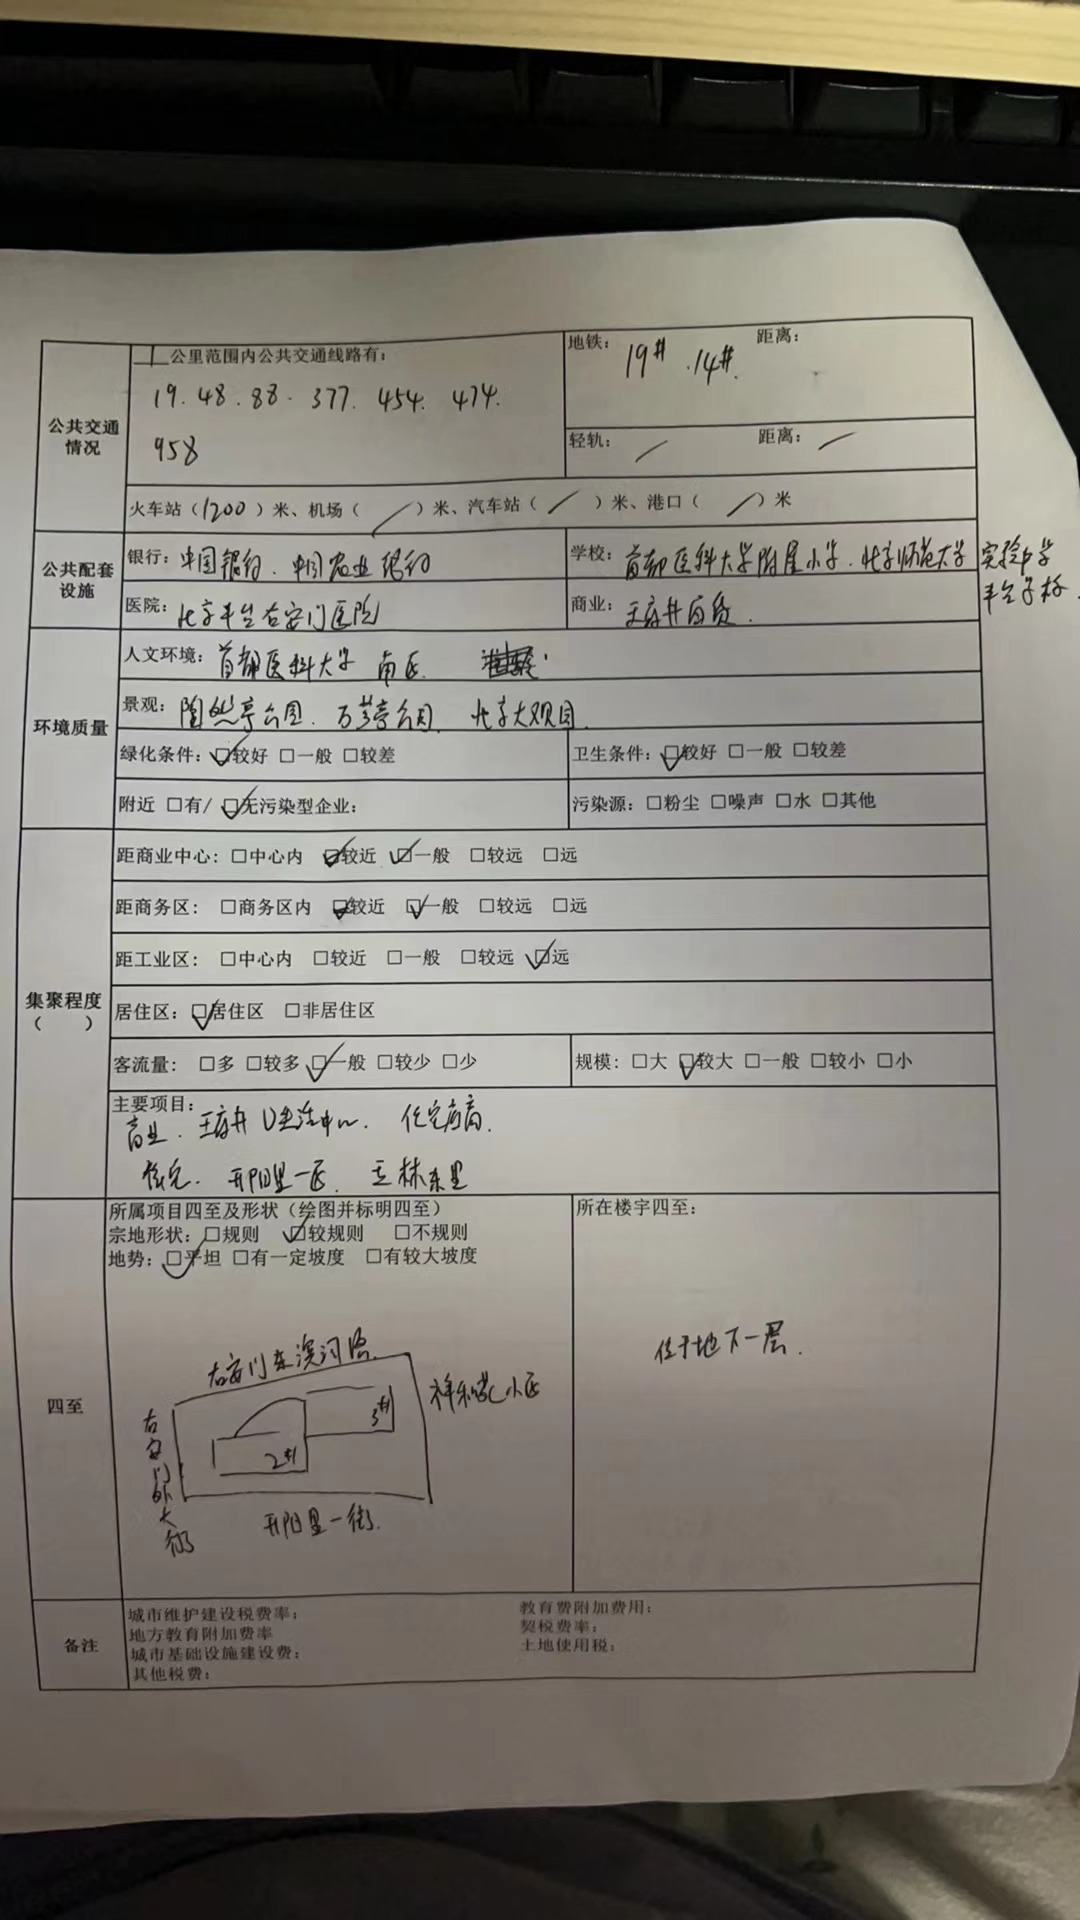 公共交通情况
1 公里范围内公共交通线路有：
19. 48. 88. 377. 454. 474.
958
地铁： 19# . 14#. 距离：
轻轨： / 距离： /
火车站（1200）米、机场（ / ）米、汽车站（ / ）米、港口（ / ）米
公共配套设施
银行：中国银行. 中国农业银行
学校：首都医科大学附属小学. 北京师范大学实验中学丰台学校.
医院：北京丰台右安门医院
商业：王府井百货.
环境质量
人文环境：首都医科大学 南区.
景观：陶然亭公园. 万芳亭公园. 北京大观园.
绿化条件：☑较好 □一般 □较差
卫生条件：☑较好 □一般 □较差
附近 □有/ ☑无污染型企业：
污染源：□粉尘 □噪声 □水 □其他
集聚程度（ ）
距商业中心：□中心内 ☑较近 ☑一般 □较远 □远
距商务区： □商务区内 ☑较近 ☑一般 □较远 □远
距工业区： □中心内 □较近 □一般 □较远 ☑远
居住区：☑居住区 □非居住区
客流量： □多 □较多 ☑一般 □较少 □少
规模：□大 ☑较大 □一般 □较小 □小
主要项目：
商业. 王府井 生活中心. 住宅
住宅. 开阳里一区. 玉林东里
四至
所属项目四至及形状（绘图并标明四至）
宗地形状：□规则 ☑较规则 □不规则
地势：☑平坦 □有一定坡度 □有较大坡度
右安门东滨河路.
祥和苑小区
右安门外大街
3#
2#
开阳里一街.
所在楼宇四至：
位于地下一层.
备注
城市维护建设税费率： 教育费附加费用：
地方教育附加费率 契税费率：
城市基础设施建设费： 土地使用税：
其他税费：